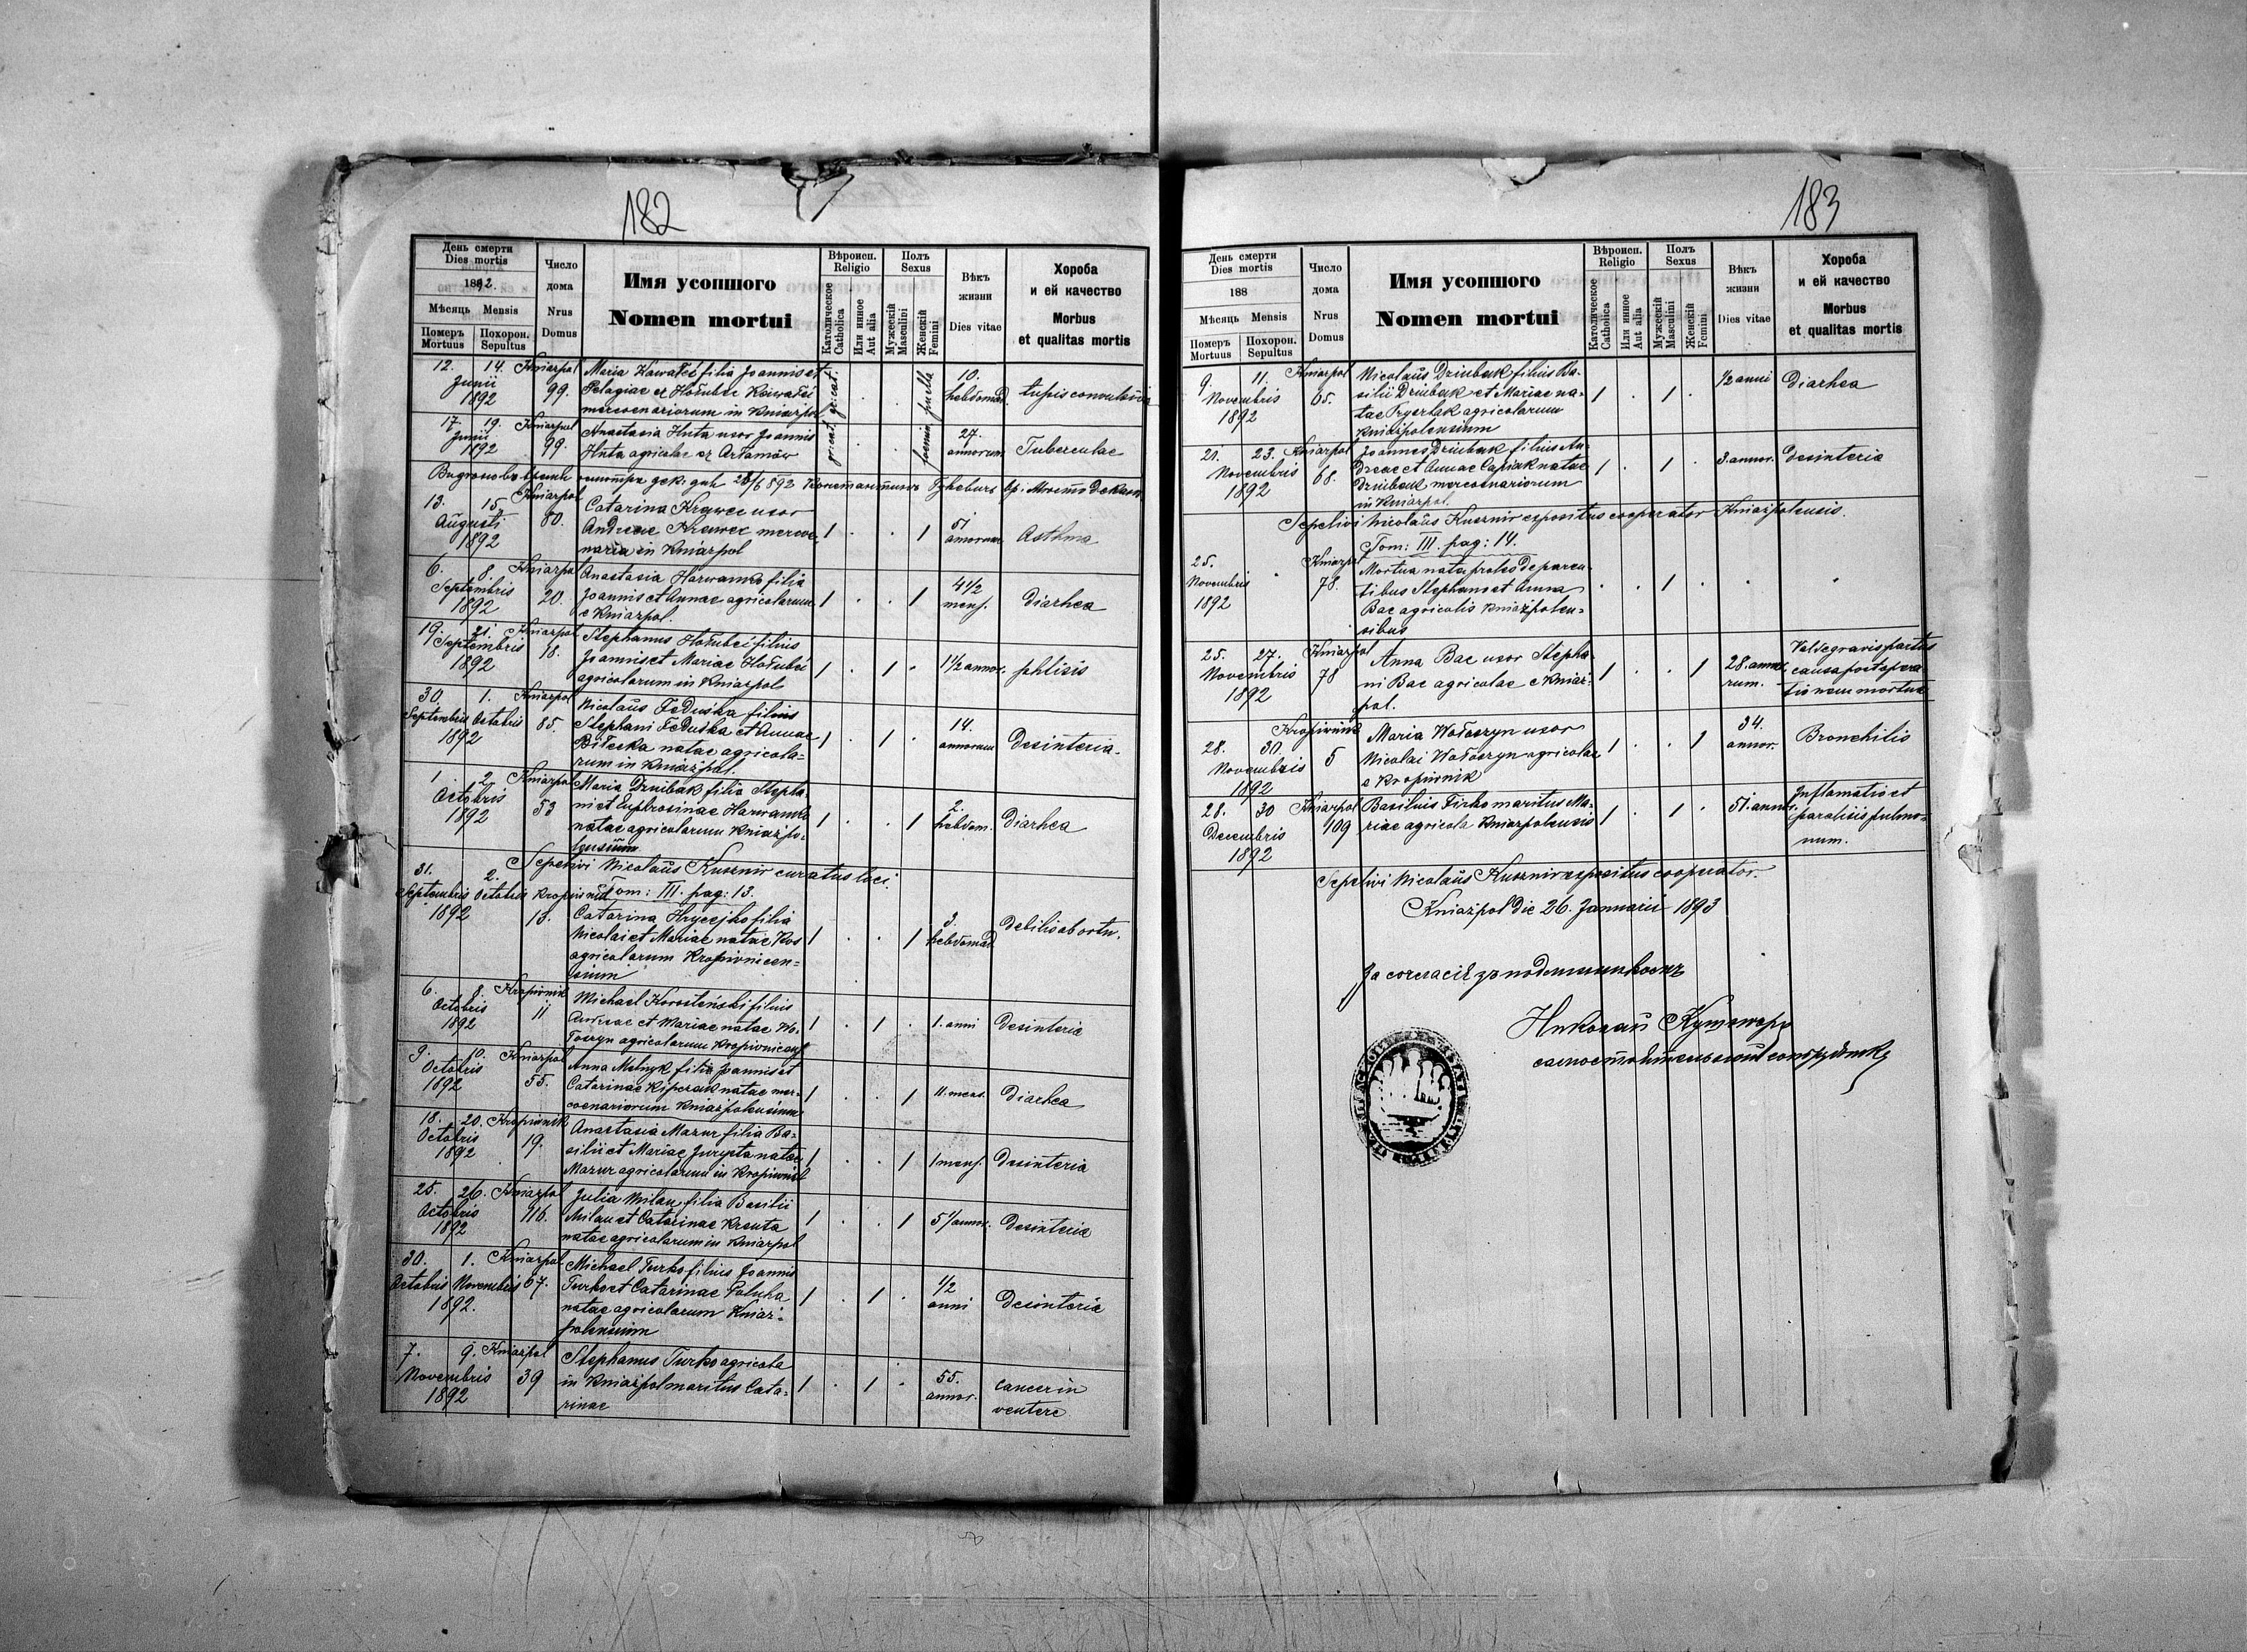 182
День смерти
Dies mortis
1892.
Мѣсяць Mensis
Померъ Mortuus
Похорон. Sepultus
Число дома
Nrus Domus
Имя усопшого
Nomen mortui
Вѣроисп. Religio
Католическое Catholica
Или инное Aut alia
Полъ Sexus
Мужескій Masculini
Женскій Femini
Вѣкъ жизни
Dies vitae
Хороба и ей качество
Morbus et qualitas mortis
12. 14. Kniazpol
Junii 99.
1892
Maria filia Joannis et
Pelagiae
mercenariorum in Kniazpol
gr. cat.
puella
10. hebdomad.
tussis convulsiva
17. 19. Kniazpol
Junii 99.
1892
Anastasia Huta uxor Joannis
Huta agricolae ex Artamów
27. annorum
Tuberculae
13. 15. Kniazpol
Augusti 80.
1892
Catarina Krawec uxor
Andreae Krawec merce-
naria in Kniazpol
1 . . 1
51 annorum
Asthma
6. 8. Kniazpol
Septembris 20.
1892
Anastasia Harwanko filia
Joannis et Annae agricolarum
e Kniazpol.
1 . . 1
4 1/2 mens.
Diarhea
19. 21. Kniazpol
Septembris 18.
1892
Stephanus Hołubei filius
Joannis et Mariae Hołubei
agricolarum in Kniazpol
1 . 1 .
1 1/2 annor.
phtisis
30. 1. Kniazpol
Septembris Octobris 85.
1892
Nicolaus Feduśka filius
Stephani Feduśka et Annae
Biłeska natae agricola-
rum in Kniażpol.
1 . 1 .
14. annorum
Desinteria.
1 2. Kniazpol
Octobris 53
1892
Maria Dziubak filia Stepha
ni et Euphrosinae Harwanko
natae agricolarum Kniażpo-
lensium
1 . . 1
2. hebdom.
Diarhea
Sepelivi Nicolaus Kusznir curatus loci.
Tom: III. pag: 13.
31. 2.
Septembris Octobris Kropivnik
1892 13.
Catarina Hrycejko filia
Nicolai et Mariae natae Kos
agricolarum Kropivnicen-
sium
1 . . 1
3. hebdomad
Debilis ab ortu.
6. 8. Kropivnik
Octobris 11
1892
Michael Korosteński filius
Andreae et Mariae natae Wo-
łoszyn agricolarum Kropivnicens
1 . 1 .
1. anni
Desinteria
9. 10. Kniazpol
Octobris 55.
1892
Anna Melnyk filia Joannis et
Catarinae Kiperak natae mer-
coenariorum Kniazpolensium
1 . . 1
11. mens.
Diarhea
18. 20. Kropivnik
Octobris 19.
1892
Anastasia Mazur filia Ba-
silii et Mariae Jurysta natae
Mazur agricolarum in Kropivnik
1 . . 1
1 mens.
Desinteria
25. 26. Kniazpol
Octobris 116.
1892
Julia Milan filia Basilii
Milan et Catarinae Kreuta
natae agricolarum in Kniazpol
1 . . 1
annor.
Desinteria
30. 1. Kniazpol
Octobris Novembris 67.
1892.
Michael Turko filius Joannis
Turko et Catarinae Paluha
natae agricolarum Kniaż-
polensium
1 . 1 .
1/2 anni
Desinteria
7. 9. Kniazpol
Novembris 39
1892
Stephanus Turko agricola
in Kniażpol maritus Cata-
rinae
1 . 1 .
55. annor.
cancer in
ventere
183
День смерти
Dies mortis
188
Мѣсяць Mensis
Померъ Mortuus
Похорон. Sepultus
Число дома
Nrus Domus
Имя усопшого
Nomen mortui
Вѣроисп. Religio
Католическое Catholica
Или инное Aut alia
Полъ Sexus
Мужескій Masculini
Женскій Femini
Вѣкъ жизни
Dies vitae
Хороба и ей качество
Morbus et qualitas mortis
9. 11. Kniazpol
Novembris 65.
1892
Nicolaus Dziubak filius Ba-
silii Dziubak et Mariae na-
tae Frysztak agricolarum
Kniażpolensium
1 . 1 .
1/2 anni
Diarhea
21. 23. Kniazpol
Novembris 68.
1892
Joannes Dziubak filius An-
dreae et Annae Capiak natae
Dziubak mercoenariorum
in Kniazpol.
1 . 1 .
3. annor.
Desinteria
Sepelivi Nicolaus Kusznir expositus cooperator Kniażpolensis.
Tom: III. pag: 14.
25. Kniazpol
Novembris 78.
1892
Mortua nata proles de paren-
tibus Stephano et Anna
Bac agricolis Kniażpolen-
sibus
. . 1 .
25. 27. Kniazpol
Novembris 78
1892
Anna Bac uxor Stepha-
ni Bac agricolae e Kniaż-
pol.
1 . . 1
28. anno-
rum.
Valde gravis partus
causa post opera
tionem mortua
28. 30. Kropivnik
Novembris 5
1892
Maria Wołoszyn uxor
Nicolai Wołoszyn agricolae
e Kropivnik
1 . . 1
34. annor.
Bronchitis
28. 30 Kniazpol
Decembris 109
1892
Basilius Firko maritus Ma-
riae agricola Kniażpolensis
1 . 1 .
51. annor.
Inflamatio et
paralisis pulmo-
num.
Sepelivi Nicolaus Kusznir expositus cooperator.
Kniażpol die 26. Januarii 1893
Николай